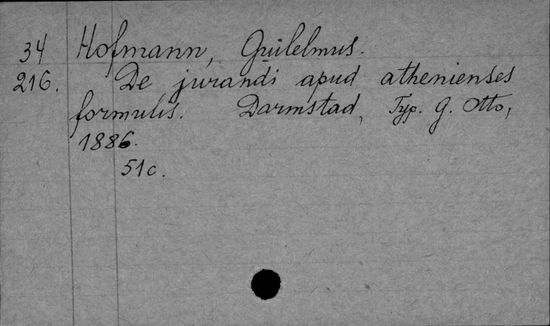 34 Hofmann, Guilelmus.
216. De jurandi apud athenienses
formulis. Darmstad, Typ. G. Otto,
1886.
51 c.